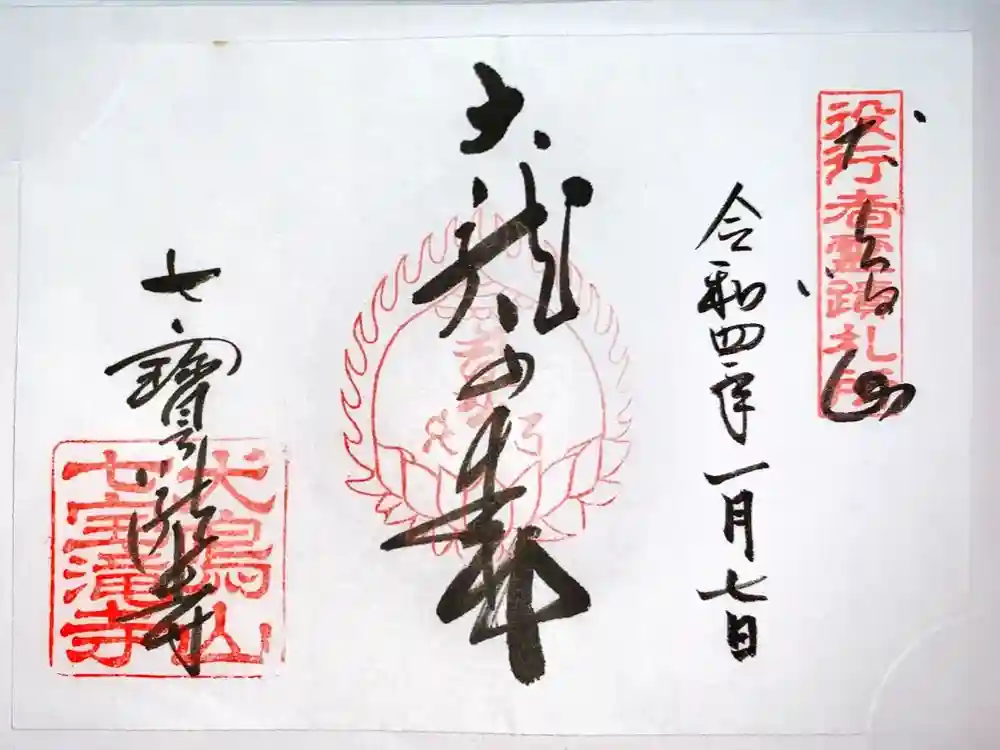 役行者霊蹟札所
犬鳴山
令和四年一月七日
大龍
七寶瀧寺
犬鳴山
七宝滝寺